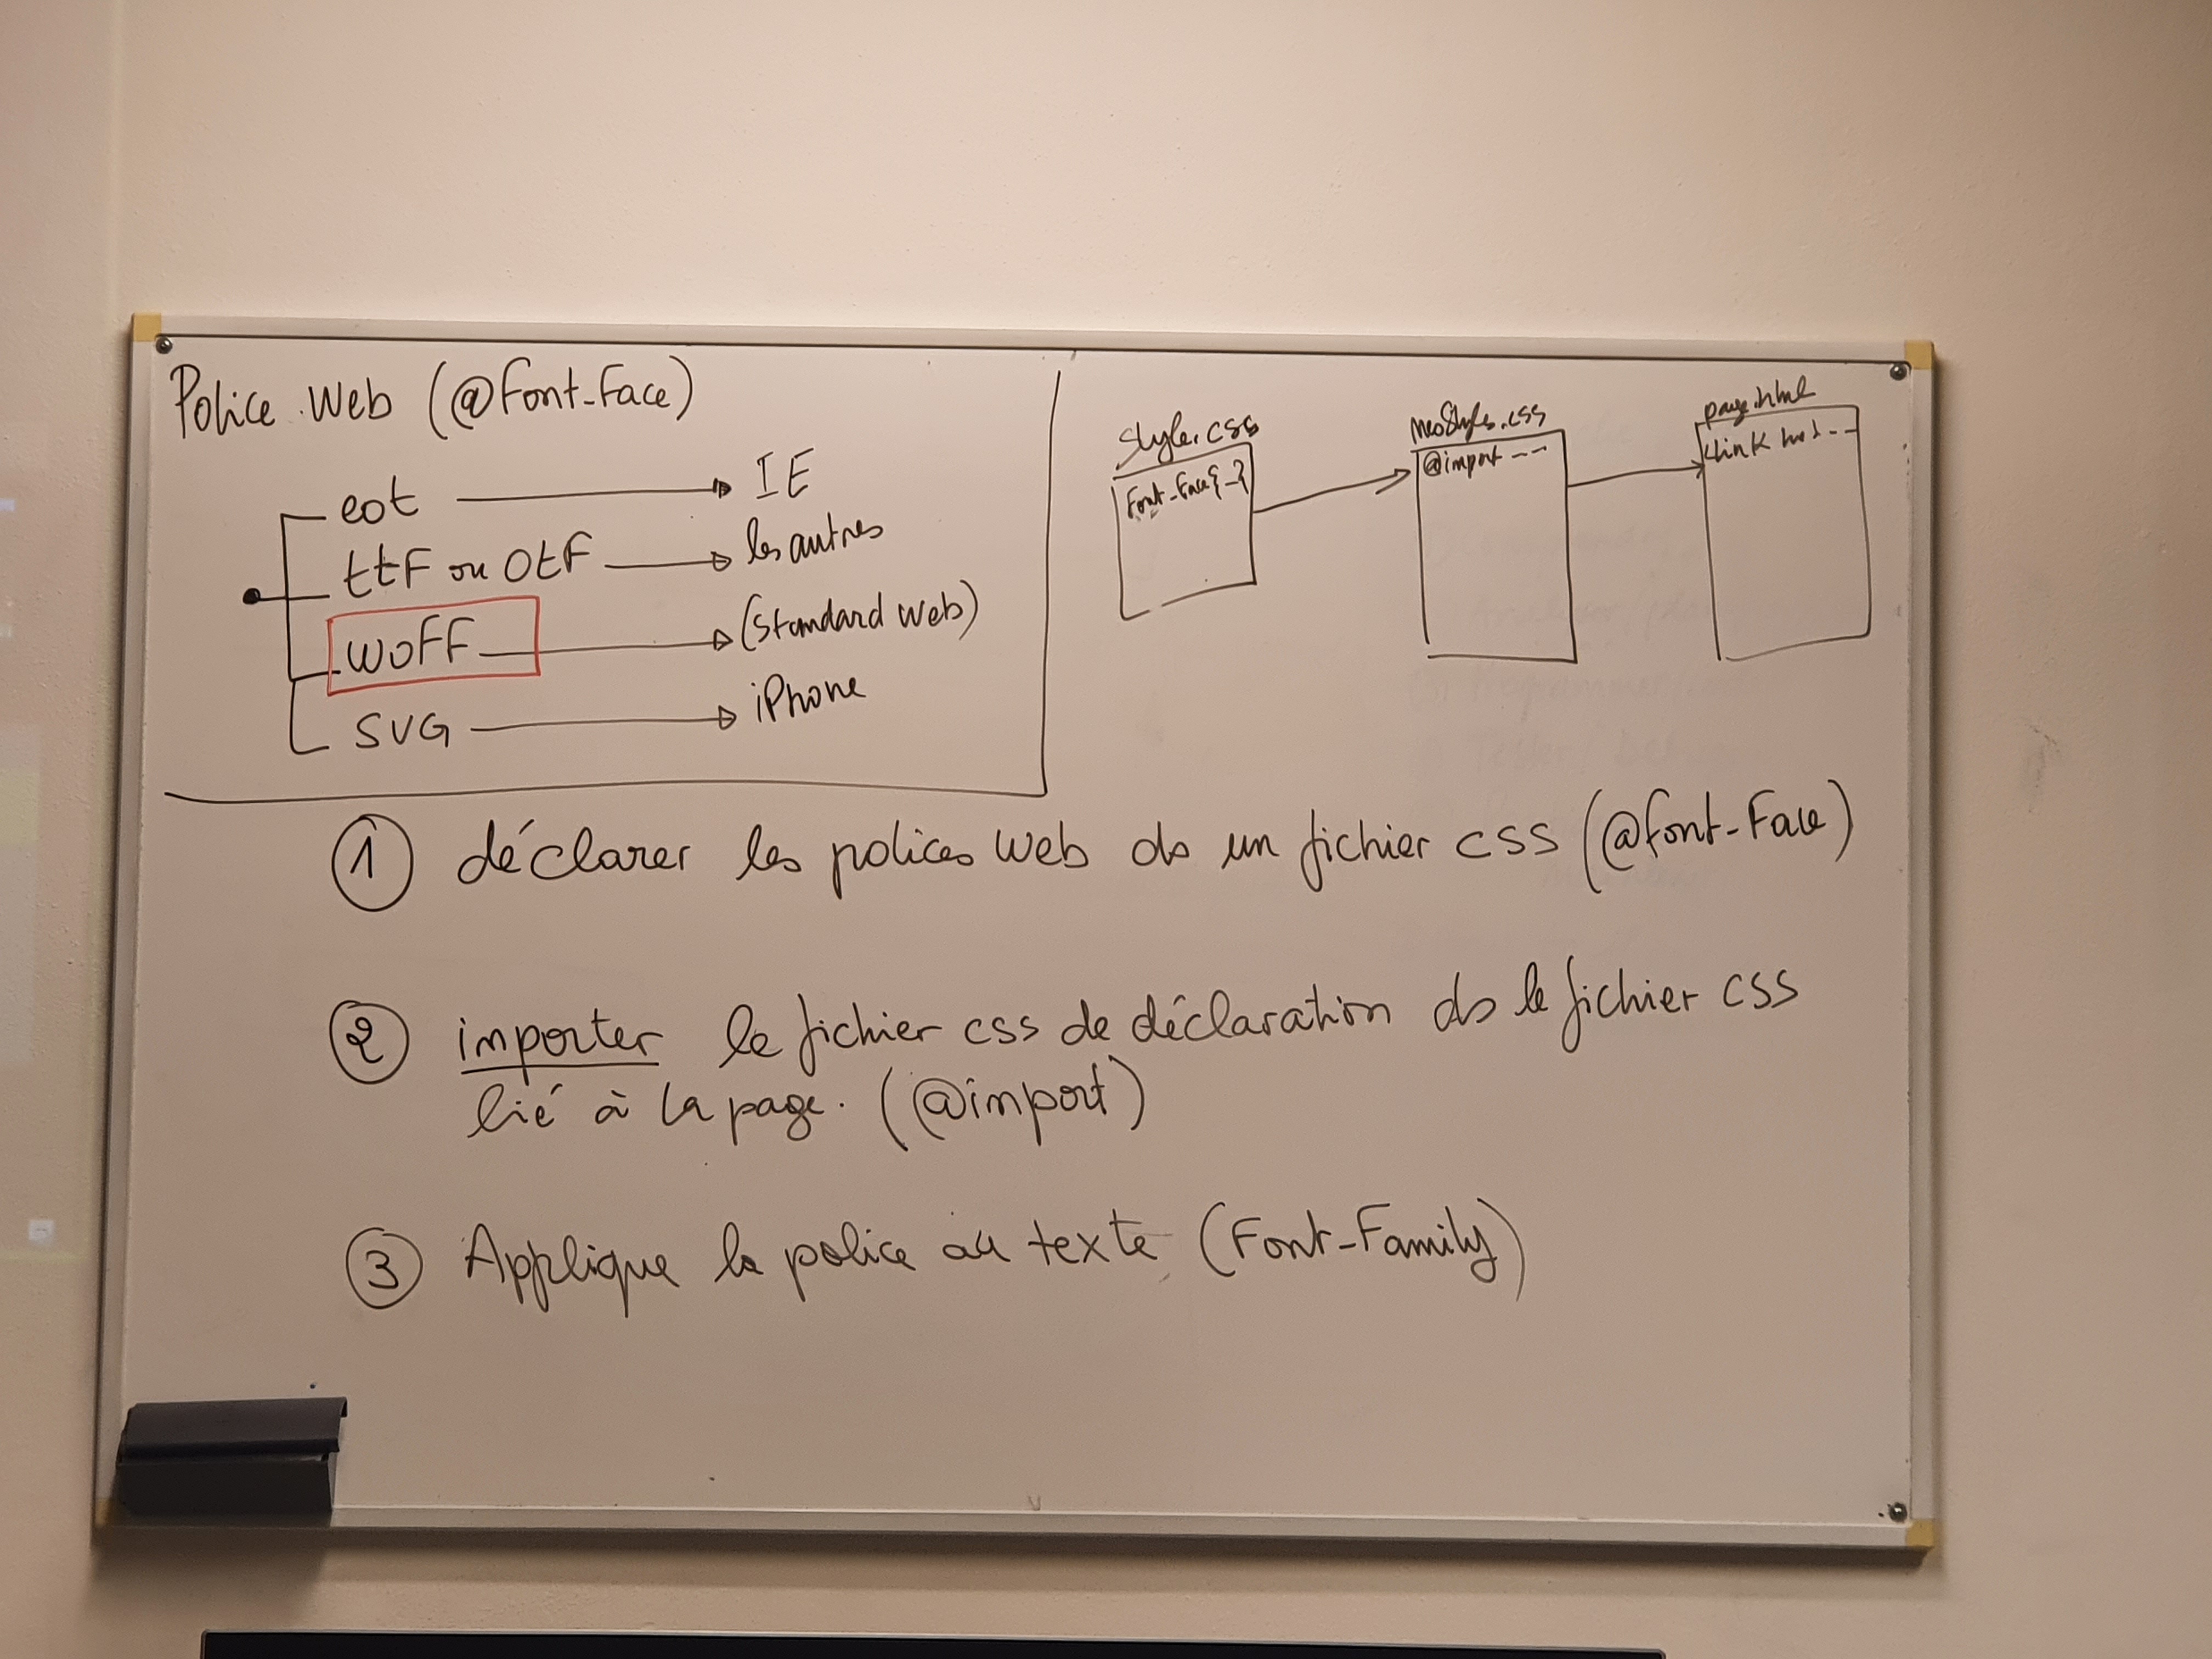 Police Web (@Font-Face)
eot → IE
ttF ou OtF → les autres
WOFF → (Standard Web)
SVG → iPhone
style.css
Font-Face{-}
mesStyles.css
@import ---
page.html
<link
① déclarer les polices Web ds un fichier CSS (@font-Face)
② importer le fichier css de déclaration ds le fichier CSS
lié à la page. (@import)
③ Applique la police au texte (Font-Family)